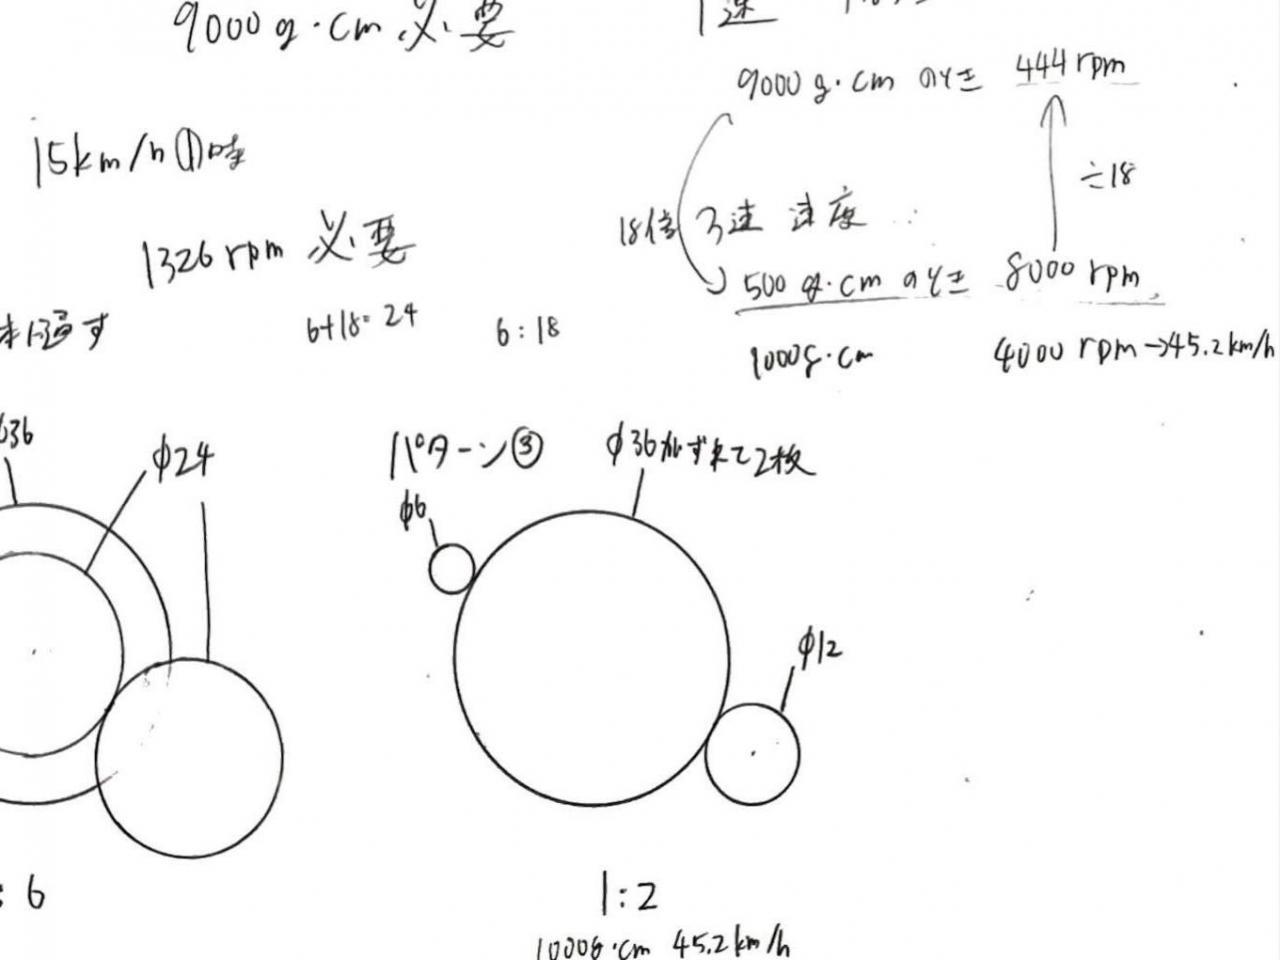 9000 g・cm 必要
1速
9000 g・cm のとき 444 rpm
15km/hの時
÷18
18倍
3速 速度
1326 rpm 必要
500 g・cm のとき 8000 rpm
通す
6+18=24
6:18
1000g・cm
4000 rpm→45.2km/h
φ24
パターン③
φ36がずれて2枚
φ6
φ12
: 6
1:2
1000g・cm 45.2km/h